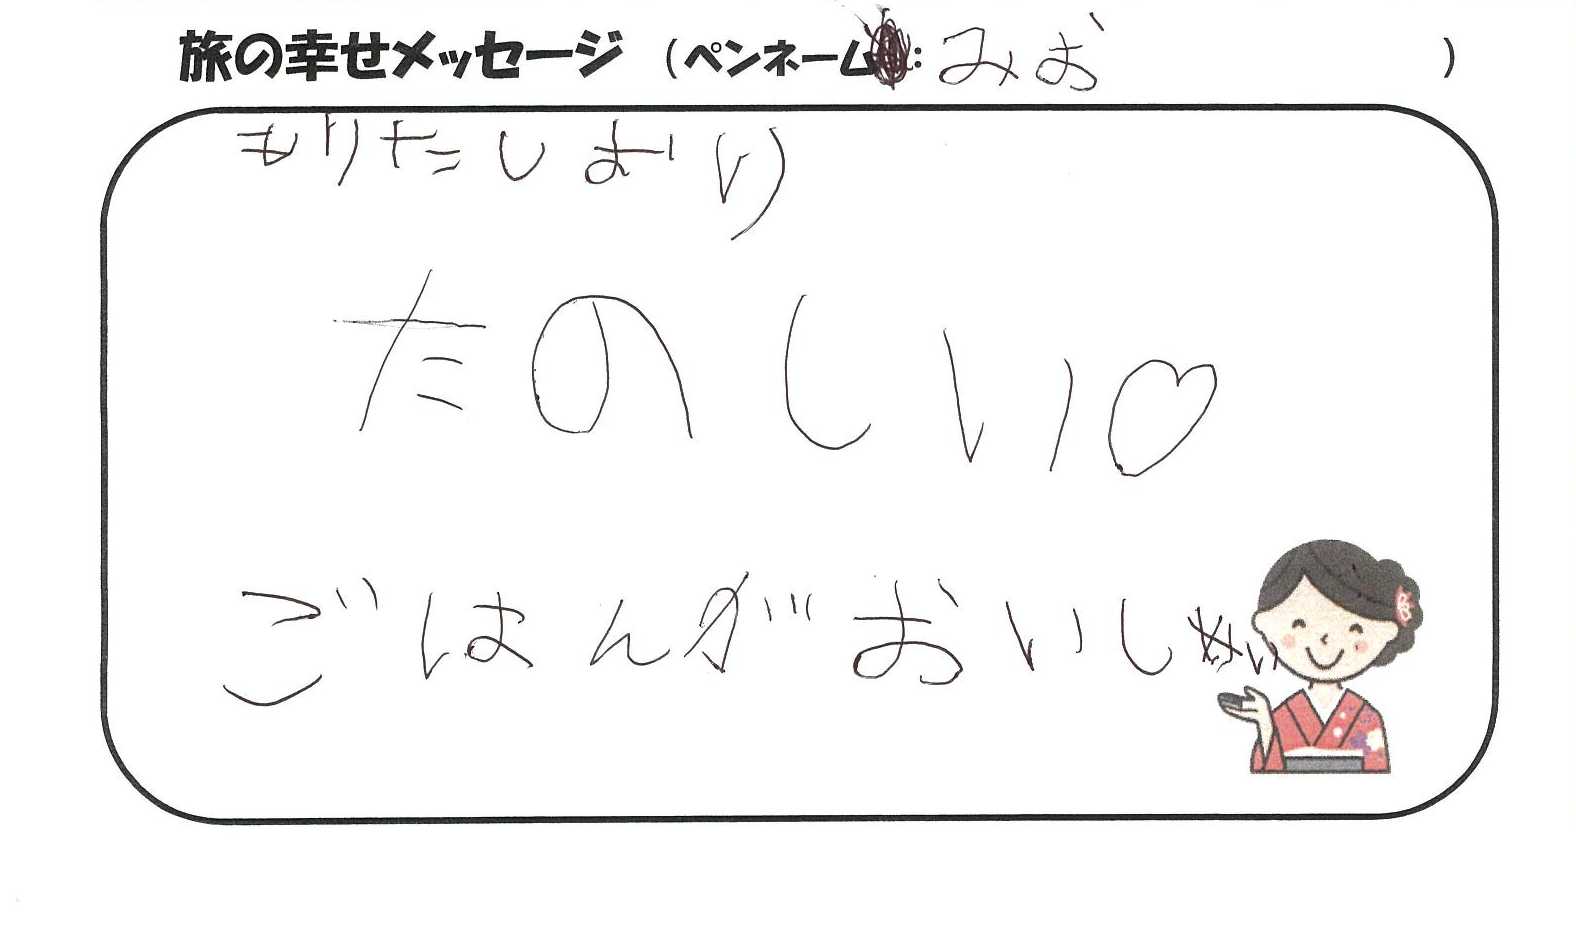 旅の幸せメッセージ (ペンネーム:みお)
もりたしおり
たのしい♡
ごはんがおいしい